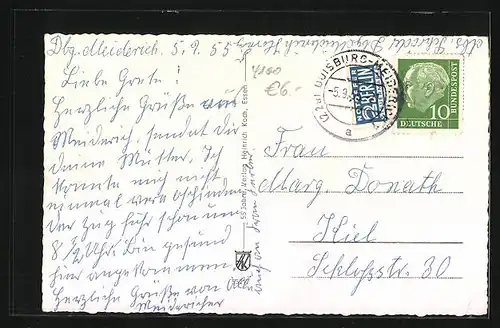 Dbg. Meiderich. 5. 9. 55
Liebe Grete!
Herzliche Grüße aus
Meiderich, sendet dir
deine Mutter. Ich
konnte mich nicht
einmal verabschieden
der Zug fuhr schon um
8 1/2 Uhr. Bin gesund
hier angekommen
Herzliche Grüße von
Meidericher
auch von Frau
4100
€6.-
55 Jahre Verlag Heinrich Koch, Essen
(22a) DUISBURG-MEIDERICH
-5.9.
a
NOTOPFER
2 BERLIN
STEUERMARKE
DEUTSCHE
BUNDESPOST
10
Frau
Marg. Donath
Kiel
Schloßstr. 30